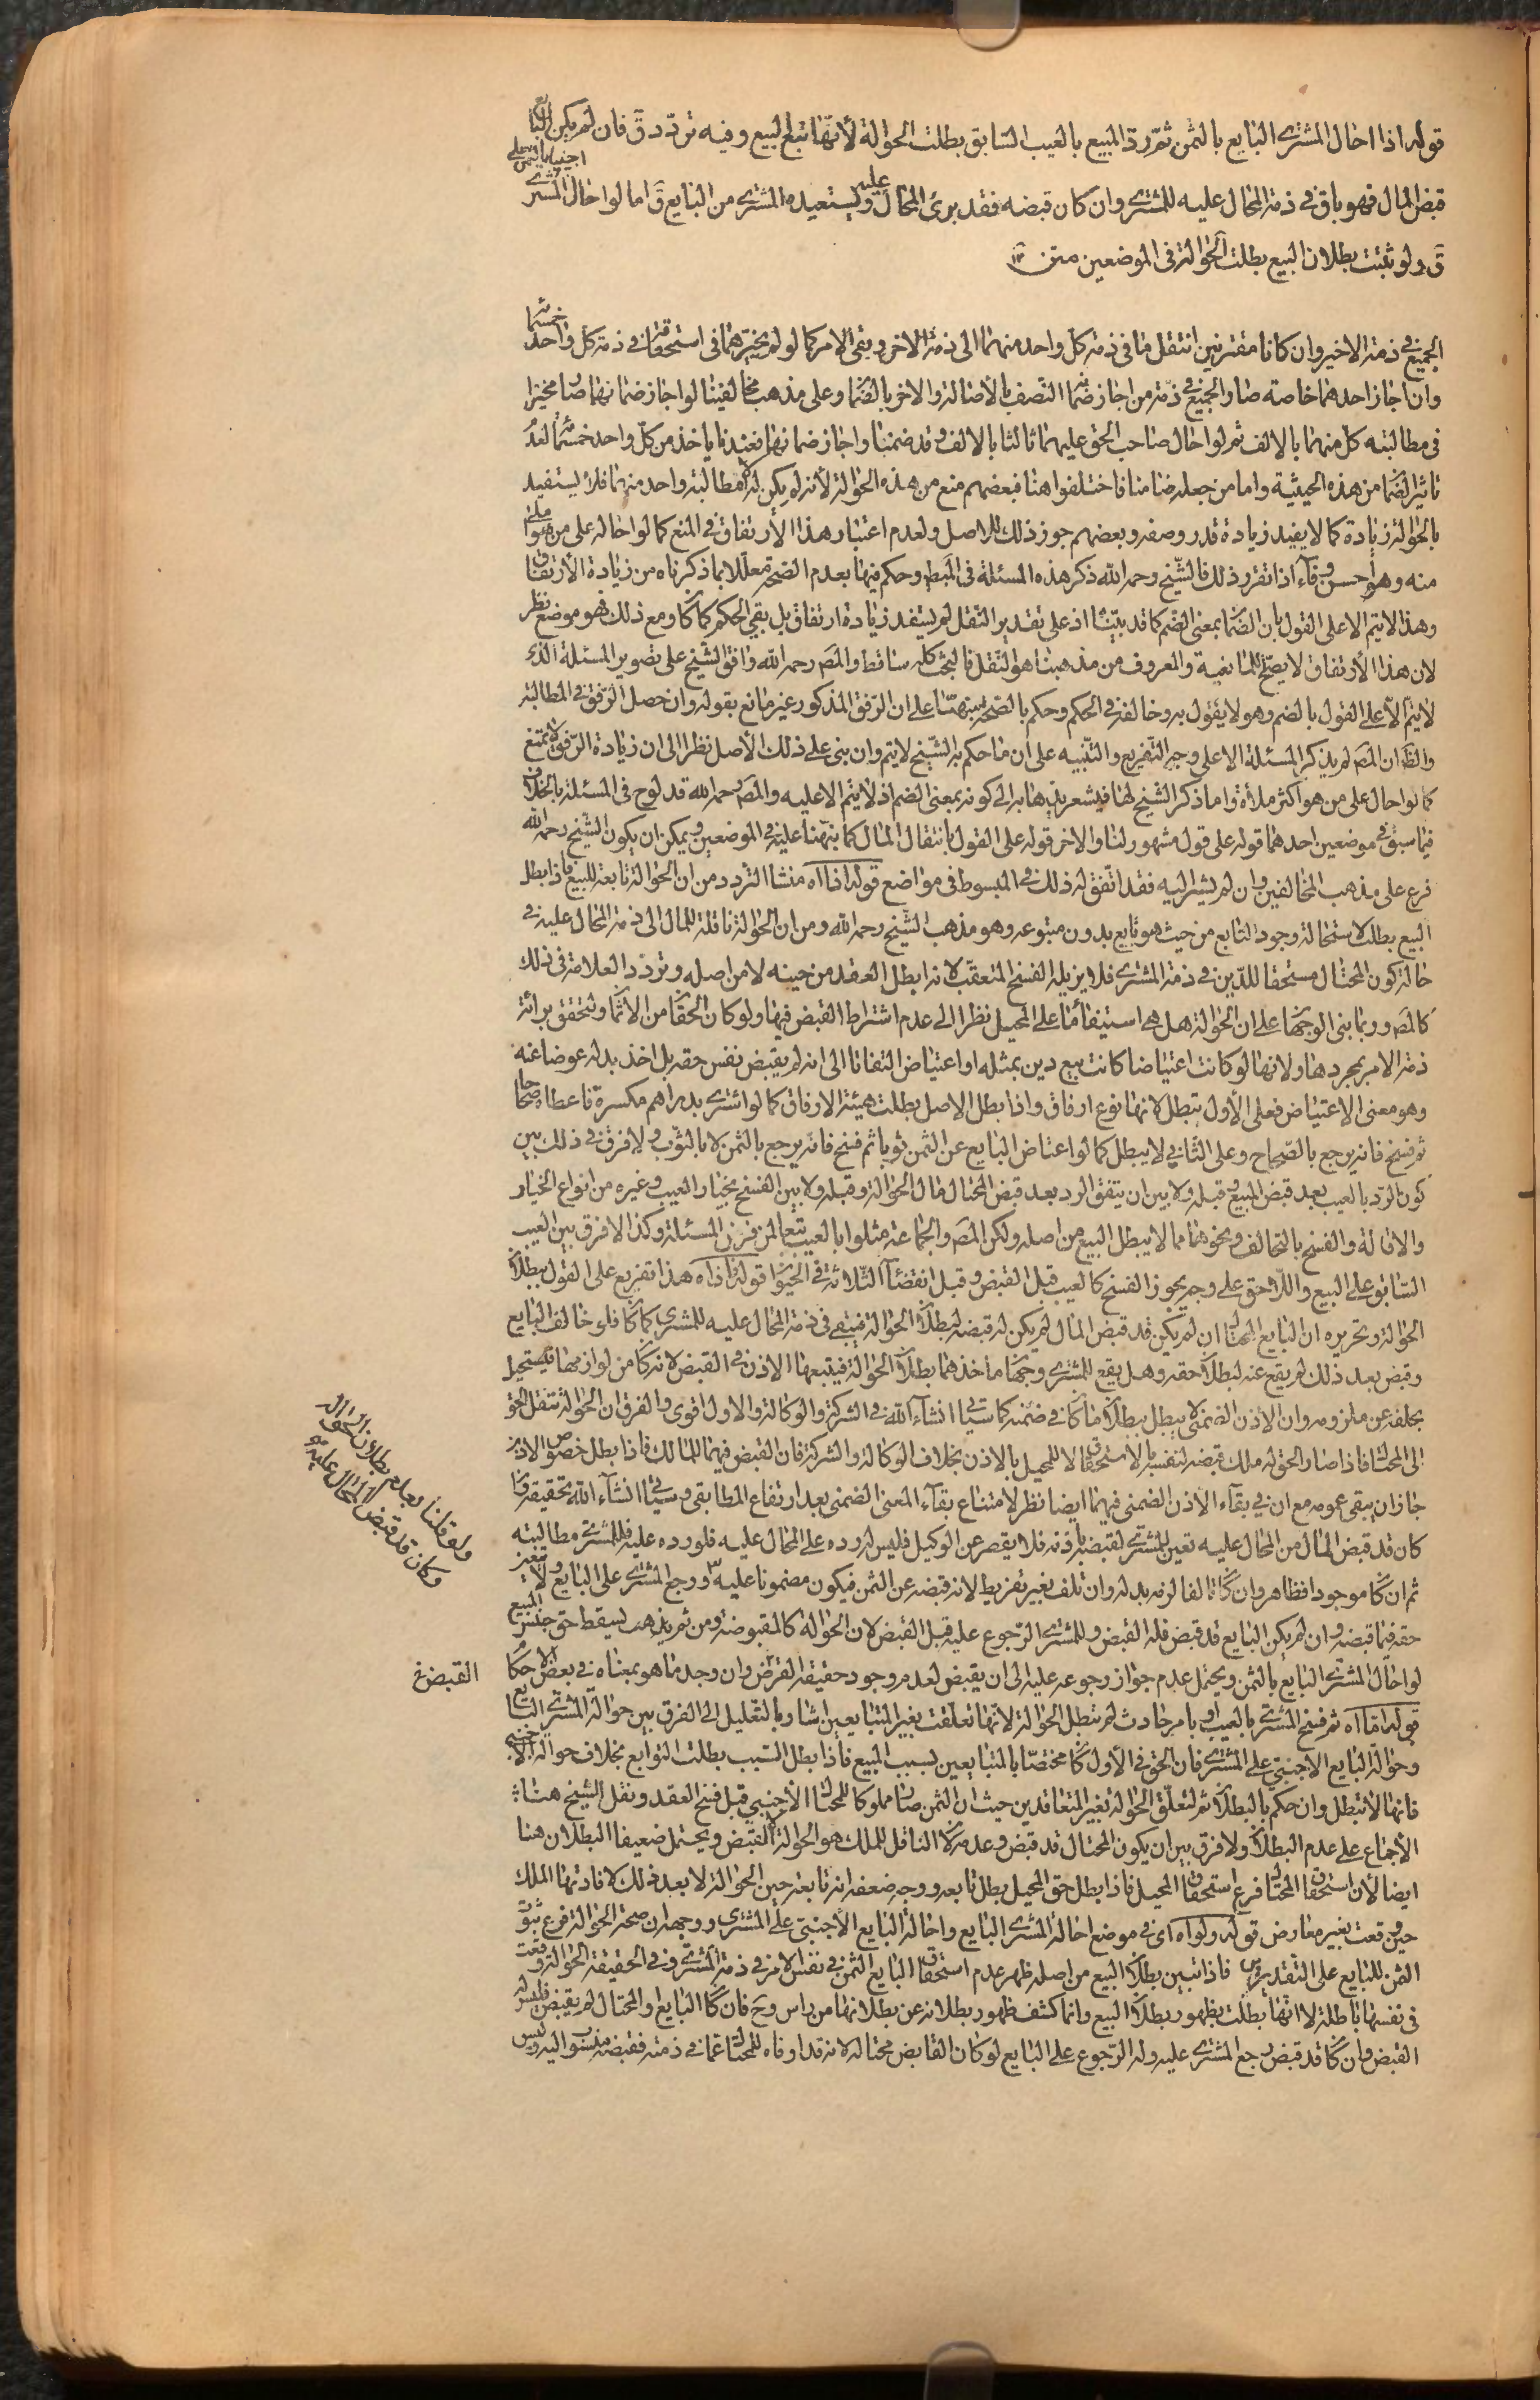 قوله اذا احال المشتری البایع بالثمن ثم رد المبیع بالعیب السابق بطلت الحوالة لأنها تتبع البیع وفیه تردد ق فان لم یکن البایع
قبض المال فهو باق فی ذمة المحال علیه للمشتری وان کان قبضه فقد برئ المحال علیه ویستعیده المشتری من البایع ق اما لو احال المشتری اجنبیا بالثمن علی
ق ولو ثبتت بطلان البیع بطلت الحوالة فی الموضعین متن
الجمیع فی ذمة الاخیر وان کانا مقترنین انتقل ما فی ذمة کل واحد منهما الی ذمة الاخر وبقی الامر کما لو لم یخیرهما فی استحقاق فی ذمة کل واحد خمسمأة
وان اجاز احدهما خاصه صار الجمیع فی ذمة من اجاز ضمانه النصف بالأصالة والاخر بالضمان وعلی مذهب مخالفینا لو اجاز ضمانهما صار مخیرا
فی مطالبته کل منهما بالالف ثم لو احال صاحب الحق علیهما ثالثا بالالف وقد ضمنا واجاز ضمانهما فعندنا یاخذ من کل واحد خمسمأة لعدم
تاثیر الضمان من هذه الحیثیة واما من جعله ضامنا فاختلفوا هنا فبعضهم منع من هذه الحوالة لأنه لم یکن له الا مطالبة واحد منهما فلا یستفید
بالحوالة زیادة کما لا یفید زیادة قدر وصفه وبعضهم جوز ذلک للاصل ولعدم اعتبار هذا الأرتفاق فی المنع کما لو احاله علی من هو املی
منه وهو احسن وفاء اذا تقرر ذلک فالشیخ رحمه الله ذکر هذه المسئلة فی المبسوط وحکم فیها بعدم الصحة معللا بما ذکرناه من زیادة الأرتفاق
وهذا لا یتم الا علی القول بان الضمان بمعنی الضم کما قد بیناه اذ علی تقدیر النقل لم یستفد زیادة ارتفاق بل بقی الحکم کما کان ومع ذلک فهو موضع نظر
لان هذا الأرتفاق لا یصح للمانعیة والمعروف من مذهبنا هو النقل فالبحث کله ساقط والمص رحمه الله وافق الشیخ علی تصویر المسئلة الذی
لا یتم الا علی القول بالضم وهو لا یقول به وخالفه فی الحکم وحکم بالصحة منبها علی ان الرفق المذکور غیر مانع بقوله وان حصل الرفق فی المطالبة
والظ ان المص لم یذکر المسئلة الا علی وجه التفریع والتنبیه علی ان ما حکم به الشیخ لا یتم وان بنی علی ذلک الأصل نظرا الی ان زیادة الرفق لا تمنع
کما لو احال علی من هو اکثر ملأة واما ذکر الشیخ لها فیشعر بذهابه الی کونه بمعنی الضم اذ لا یتم الا علیه والمص رحمه الله قد لوح فی المسئلة بالخلاف
فیما سبق فی موضعین احدهما قوله علی قول مشهور لنا والاخر قوله علی القول بانتقال المال کما نبهنا علیه فی الموضعین ویمکن ان یکون الشیخ رحمه الله
فرع علی مذهب المخالفین وان لم یشر الیه فقد اتفق له ذلک فی المبسوط فی مواضع قوله اذا اه منشا التردد من ان الحوالة تابعة للبیع فاذا بطل
البیع بطلت لاستحالة وجود التابع من حیث هو تابع بدون متبوعه وهو مذهب الشیخ رحمه الله ومن ان الحوالة ناقلة للمال الی ذمة المحال علیه فی
حالة کون المحتال مستحقا للدین فی ذمة المشتری فلا یزیله الفسخ المتعقب لانه ابطل العقد من حینه لا من اصله وتردد العلامة فی ذلک
کالمص وربما بنی الوجهان علی ان الحوالة هل هی استیفاء ما علی المحیل نظرا الی عدم اشتراط القبض فیها ولو کان الحق من الأثمان ولتحقق برائة
ذمة الامر بمجردها ولانها لو کانت اعتیاضا کانت بیع دین بمثله او اعتیاض التفاتا الی انه لم یقبض نفس حقه بل اخذ بدله عوضا عنه
وهو معنی الاعتیاض فعلی الأول تبطل لانها نوع ارفاق واذا بطل الاصل بطلت هیئة الارفاق کما لو اشتری بدراهم مکسرة فاعطاه صحاحا
ثم فسخ فانه یرجع بالصحاح وعلی الثانی لا یبطل کما لو اعتاض البایع عن الثمن ثوبا ثم فسخ فانه یرجع بالثمن لا بالثوب ولا فرق فی ذلک بین
کون الرد بالعیب بعد قبض المبیع وقبله ولا بین ان یتفق الرد بعد قبض المحتال مال الحوالة وقبله ولا بین الفسخ بخیار العیب وغیره من انواع الخیار
والاقالة والفسخ بالتحالف ونحوهما مما لا یبطل البیع من اصله ولکن المص والجماعة مثلوا بالعیب تبعا لمن فرض المسئلة وکذا لا فرق بین العیب
السابق علی البیع واللاحق علی وجه یجوز الفسخ کالعیب قبل القبض وقبل انقضاء الثلاثة فی الحیوان قوله فاذا اه هذا تفریع علی القول ببطلان
الحوالة وتحریره ان البایع المحتال ان لم یکن قد قبض المال لم یکن له قبضه لبطلان الحوالة فیبقی فی ذمة المحال علیه للمشتری کما کان فلو خالف البایع
وقبض بعد ذلک لم یقع عنه لبطلان حقه وهل یقع للمشتری وجهان ماخذهما بطلان الحوالة فیتبعها الاذن فی القبض لانه کان من لوازمها فیستحیل
تخلفه عن ملزومه وان الاذن الضمنی لا یبطل ببطلان ما کان فی ضمنه کما سیاتی انشاء الله فی الشرکة والوکالة والاول اقوی والفرق ان الحوالة تنقل الحق
الی المحتال فاذا صار الحق له ملک قبضه لنفسه بالاستحقاق لا للمحیل بالاذن بخلاف الوکالة والشرکة فان القبض فیهما للمالک فاذا بطل خصوص الاذن
جاز ان یبقی عمومه مع ان فی بقاء الاذن الضمنی فیهما ایضا نظر لامتناع بقاء المعنی الضمنی بعد ارتفاع المطابقی وسیاتی انشاء الله تحقیقه
کان قد قبض المال من المحال علیه تعین للمشتری لقبضه باذنه فلا یقصر عن الوکیل فلیس له رده علی المحال علیه فلو رده علیه فللمشتری مطالبته
ثم ان کان موجودا فظاهر وان کان تالفا لزمه بدله وان تلف بغیر تفریط لانه قبضه عن الثمن فیکون مضمونا علیه ورجع المشتری علی البایع ولا یتعین
حقه فیما قبضه وان لم یکن البایع قد قبض فله القبض وللمشتری الرجوع علیه قبل القبض لان الحوالة کالمقبوضة ومن ثم یذهب لیسقط حق حبس المبیع
لو احال المشتری البایع بالثمن ویحتمل عدم جواز رجوعه علیه الی ان یقبض لعدم وجود حقیقة القبض وان وجد ما هو بمعناه فی بعض الاحکام
قوله اما اه ثم فسخ المشتری بالعیب او بامر حادث لم تبطل الحوالة لانها تعلقت بغیر المتبایعین اشار بالتعلیل الی الفرق بین حوالة المشتری البایع
وحوالة البایع الاجنبی علی المشتری فان الحق فی الأول کان مختصا بالمتبایعین بسبب المبیع فاذا بطل السبب بطلت التوابع بخلاف حوالة الاجنبی
فانها لا تبطل وان حکم بالبطلان ثم لتعلق الحوالة بغیر المتعاقدین حیث ان الثمن صار مملوکا للمحتال الأجنبی قبل فسخ العقد ونقل الشیخ هنا
الأجماع علی عدم البطلان ولا فرق بین ان یکون المحتال قد قبض وعدمه لان الناقل للملک هو الحوالة لا القبض ویحتمل ضعیفا البطلان هنا
ایضا لأن استحقاق المحتال فرع استحقاق المحیل فاذا بطل حق المحیل بطل تابعه ووجه ضعفه انه تابعه حین الحوالة لا بعد ذلک لافادتها الملک
حین وقعت بغیر معارض قوله ولو اه ای فی موضع احالة المشتری البایع واحالة البایع الأجنبی علی المشتری ووجهه ان صحة الحوالة فرع ثبوت
الثمن للبایع علی التقدیرین فاذا تبین بطلان البیع من اصله ظهر عدم استحقاق البایع الثمن فی نفس الامر فی ذمة المشتری وفی الحقیقة الحوالة وقعت
فی نفسها باطلة لا انها بطلت بظهور بطلان البیع وانما کشف ظهور بطلانه عن بطلانها من راس وح فان کان البایع او المحتال لم یقبض فلیس له
القبض وان کان قد قبض رجع المشتری علیه وله الرجوع علی البایع لو کان القابض محتاله لانه قد اوفاه للمحتال عما فی ذمته فقبضه منسوب الیه ولیس
ولو قلنا بعدم بطلان الحوالة
وکان قد قبض المحتال علیه
القبض خ